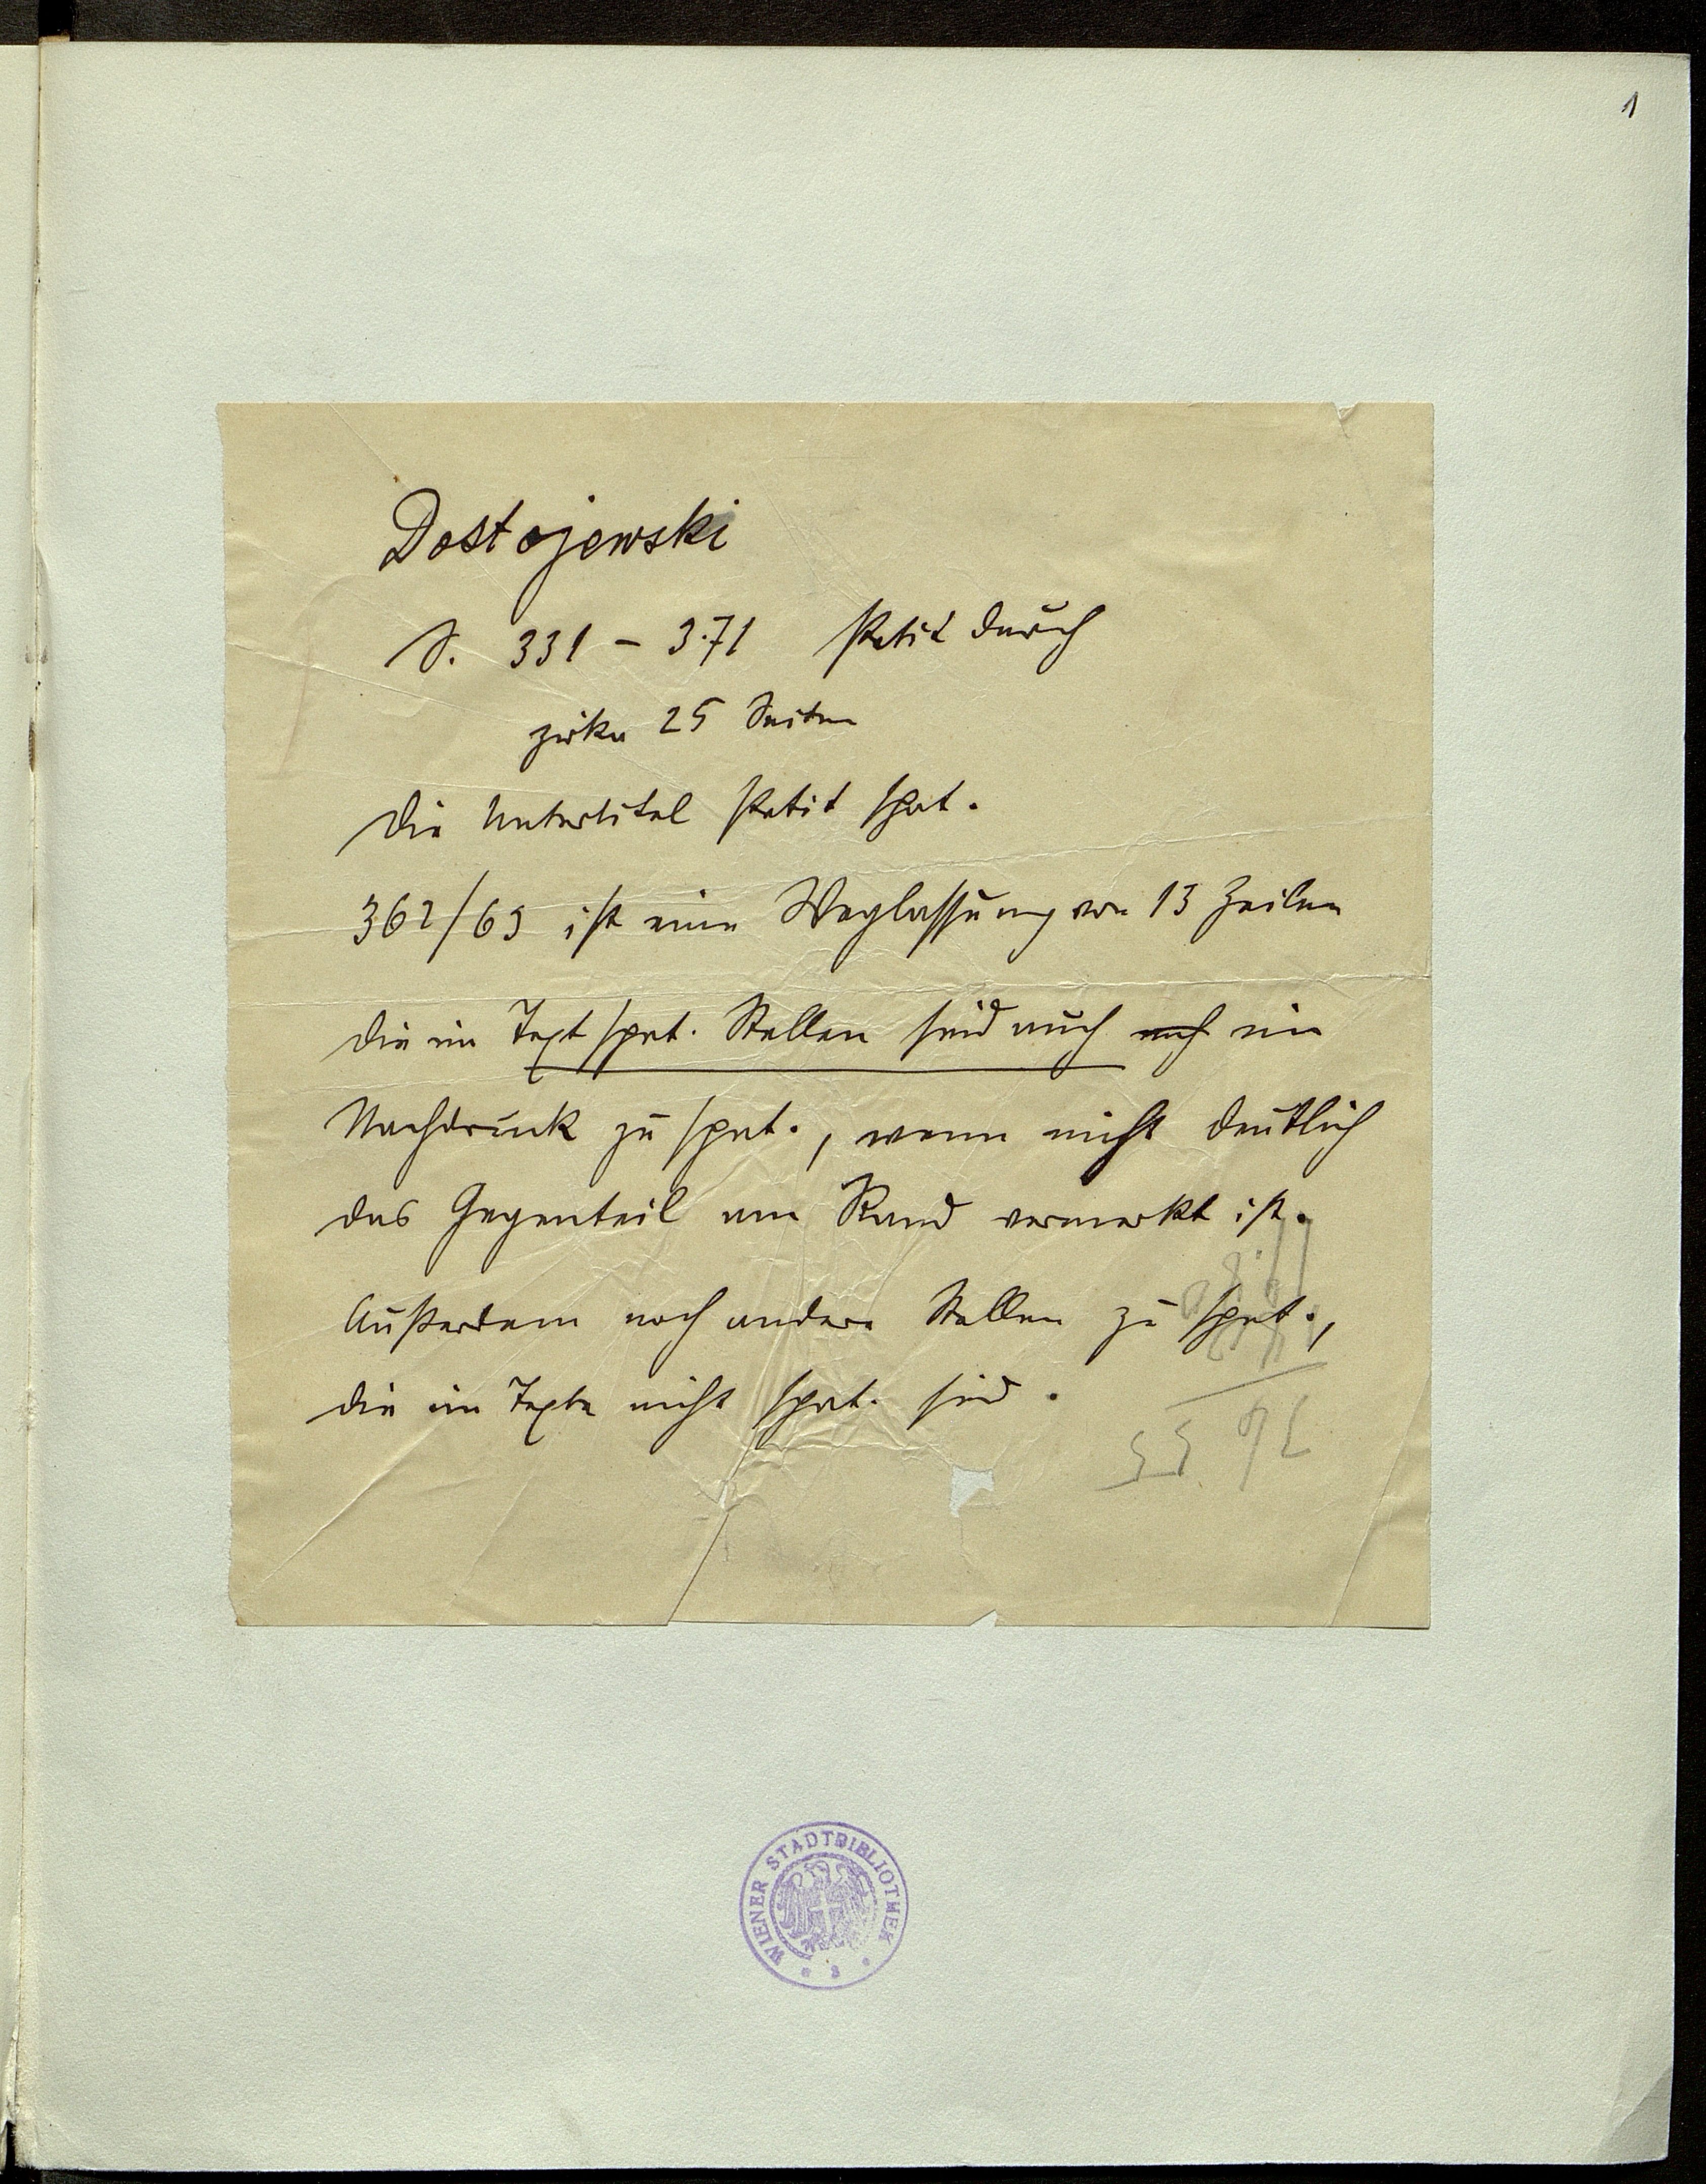 1
Dostojewski
S. 331 – 371 Petit durch
zirka 25 Seiten
Die Untertitel Petit sprt.
362/63 ist eine Weglassung von 13 Zeilen
Die im Text sprt. Stellen sind auch auch im
Nachdruck zu sprt., wenn nicht deutlich
das Gegenteil am Rand vermerkt ist.
Außerdem noch andere Stellen zu sprt.,
die im Texte nicht sprt. sind.
WIENER STADTBIBLIOTHEK